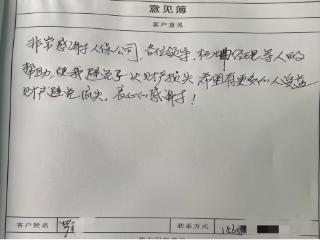 意见簿
客户意见
非常感谢人保公司，各位领导，经理等人的
帮助，使我避免了一次财产损失，希望有更多的人受益
财产避免流失，衷心的感谢！
客户姓名
联系方式